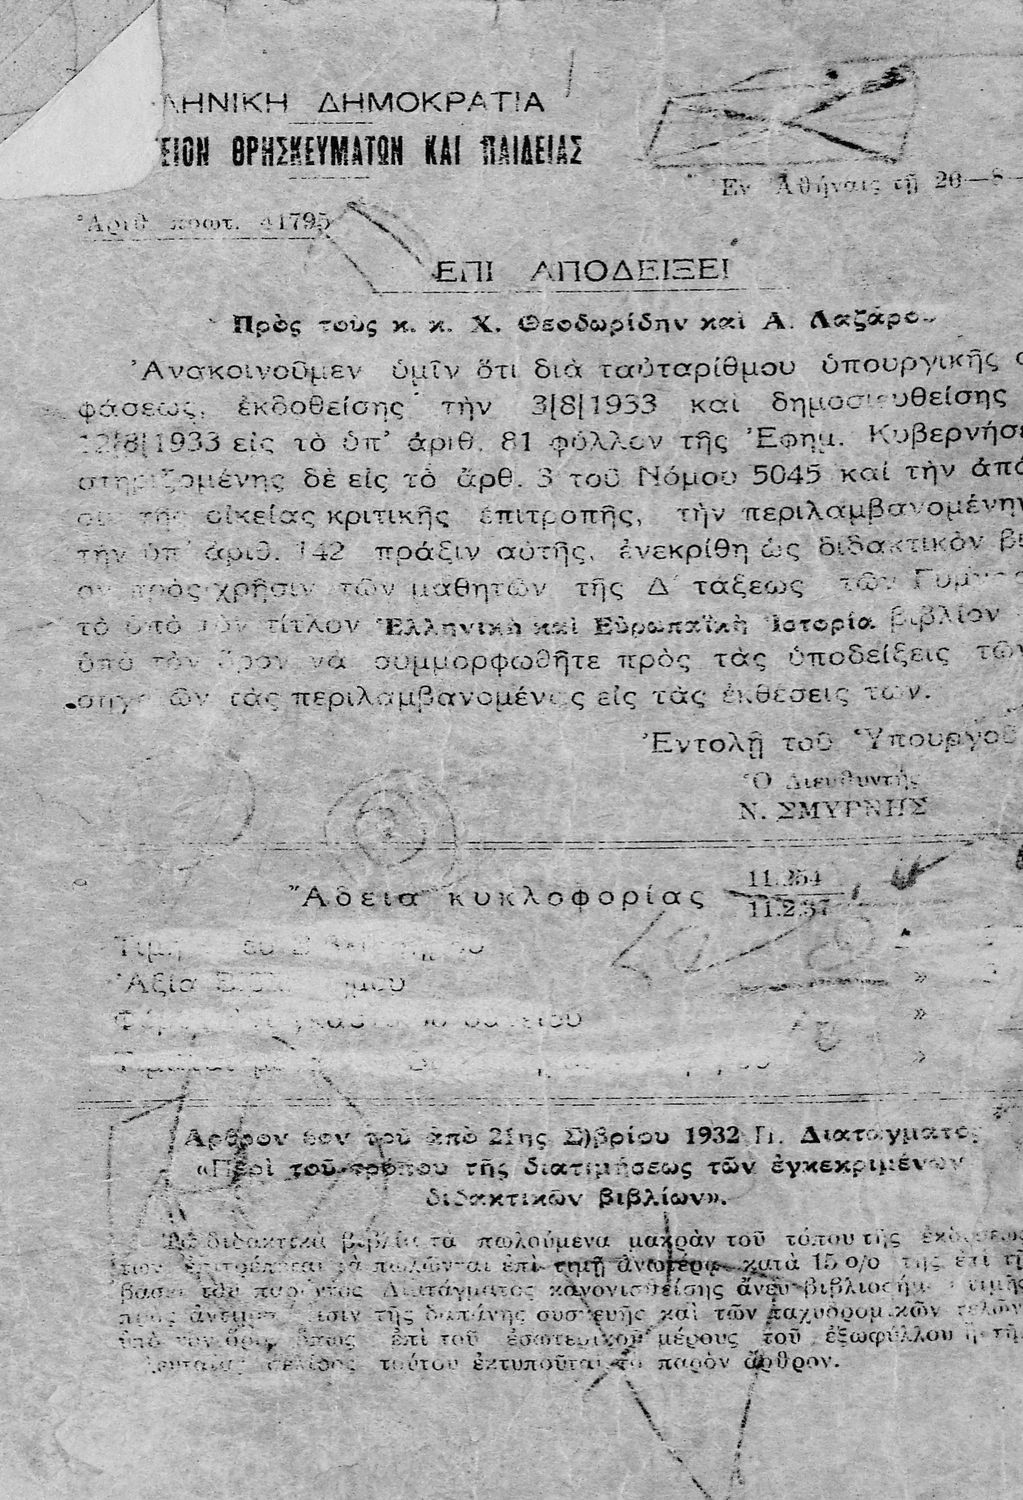 ΛΗΝΙΚΗ ΔΗΜΟΚΡΑΤΙΑ
ΕΙΟΝ ΘΡΗΣΚΕΥΜΑΤΩΝ ΚΑΙ ΠΑΙΔΕΙΑΣ
Ἐν Ἀθήναις τῇ 20—8—
Ἀριθ. πρωτ. 41795
ΕΠΙ ΑΠΟΔΕΙΞΕΙ
Πρὸς τοὺς κ. κ. Χ. Θεοδωρίδην καὶ Α. Λαζάρο
Ἀνακοινοῦμεν ὑμῖν ὅτι διὰ ταὐταρίθμου ὑπουργικῆς
φάσεως, ἐκδοθείσης τὴν 3|8|1933 καὶ δημοσιευθείσης
12|8|1933 εἰς τὸ ὑπ' ἀριθ. 81 φύλλον τῆς Ἐφημ. Κυβερνήσε
στηριζομένης δὲ εἰς τὸ ἄρθ. 3 τοῦ Νόμου 5045 καὶ τὴν ἀπό
σιν τῆς οἰκείας κριτικῆς ἐπιτροπῆς, τὴν περιλαμβανομένην
τὴν ὑπ' ἀριθ. 142 πρᾶξιν αὐτῆς, ἐνεκρίθη ὡς διδακτικὸν βι
ον πρὸς χρῆσιν τῶν μαθητῶν τῆς Δ΄ τάξεως τῶν Γυμνασ
τὸ ὑπὸ τὸν τίτλον Ἑλληνικὴ καὶ Εὐρωπαϊκὴ Ἱστορία βιβλίον
ὑπὸ τὸν ὅρον νὰ συμμορφωθῆτε πρὸς τὰς ὑποδείξεις τῶν
σηγ ῶν τὰς περιλαμβανομένας εἰς τὰς ἐκθέσεις των.
Ἐντολῇ τοῦ Ὑπουργοῦ
Ὁ Διευθυντὴς
Ν. ΣΜΥΡΝΗΣ
Ἄδεια κυκλοφορίας 11.254
11.2.37
Τιμὴ
Ἀξία
»
»
»
Ἄρθρον 6ον τοῦ ἀπὸ 21ης Σ)βρίου 1932 Π. Διατάγματος
«Περὶ τοῦ τρόπου τῆς διατιμήσεως τῶν ἐγκεκριμένων
διδακτικῶν βιβλίων».
Τὰ διδακτικὰ βιβλία τὰ πωλούμενα μακρὰν τοῦ τόπου τῆς ἐκδόσεως
των ἐπιτρέπεται νὰ πωλῶνται ἐπὶ τιμῇ ἀνωτέρᾳ κατὰ 15 ο/ο τῆς ἐπὶ τῇ
βάσει τοῦ παρόντος Διατάγματος κανονισθείσης ἄνευ βιβλιοσήμ τιμῆς
πρὸς ἀντιμετώπισιν τῆς δαπάνης συσκευῆς καὶ τῶν ταχυδρομικῶν τελῶν
ὑπὸ τὸν ὅρον ὅπως ἐπὶ τοῦ ἐσωτερικοῦ μέρους τοῦ ἐξωφύλλου ἢ τῆς
λευταίας σελίδος τούτου ἐκτυποῦται τὸ παρὸν ἄρθρον.